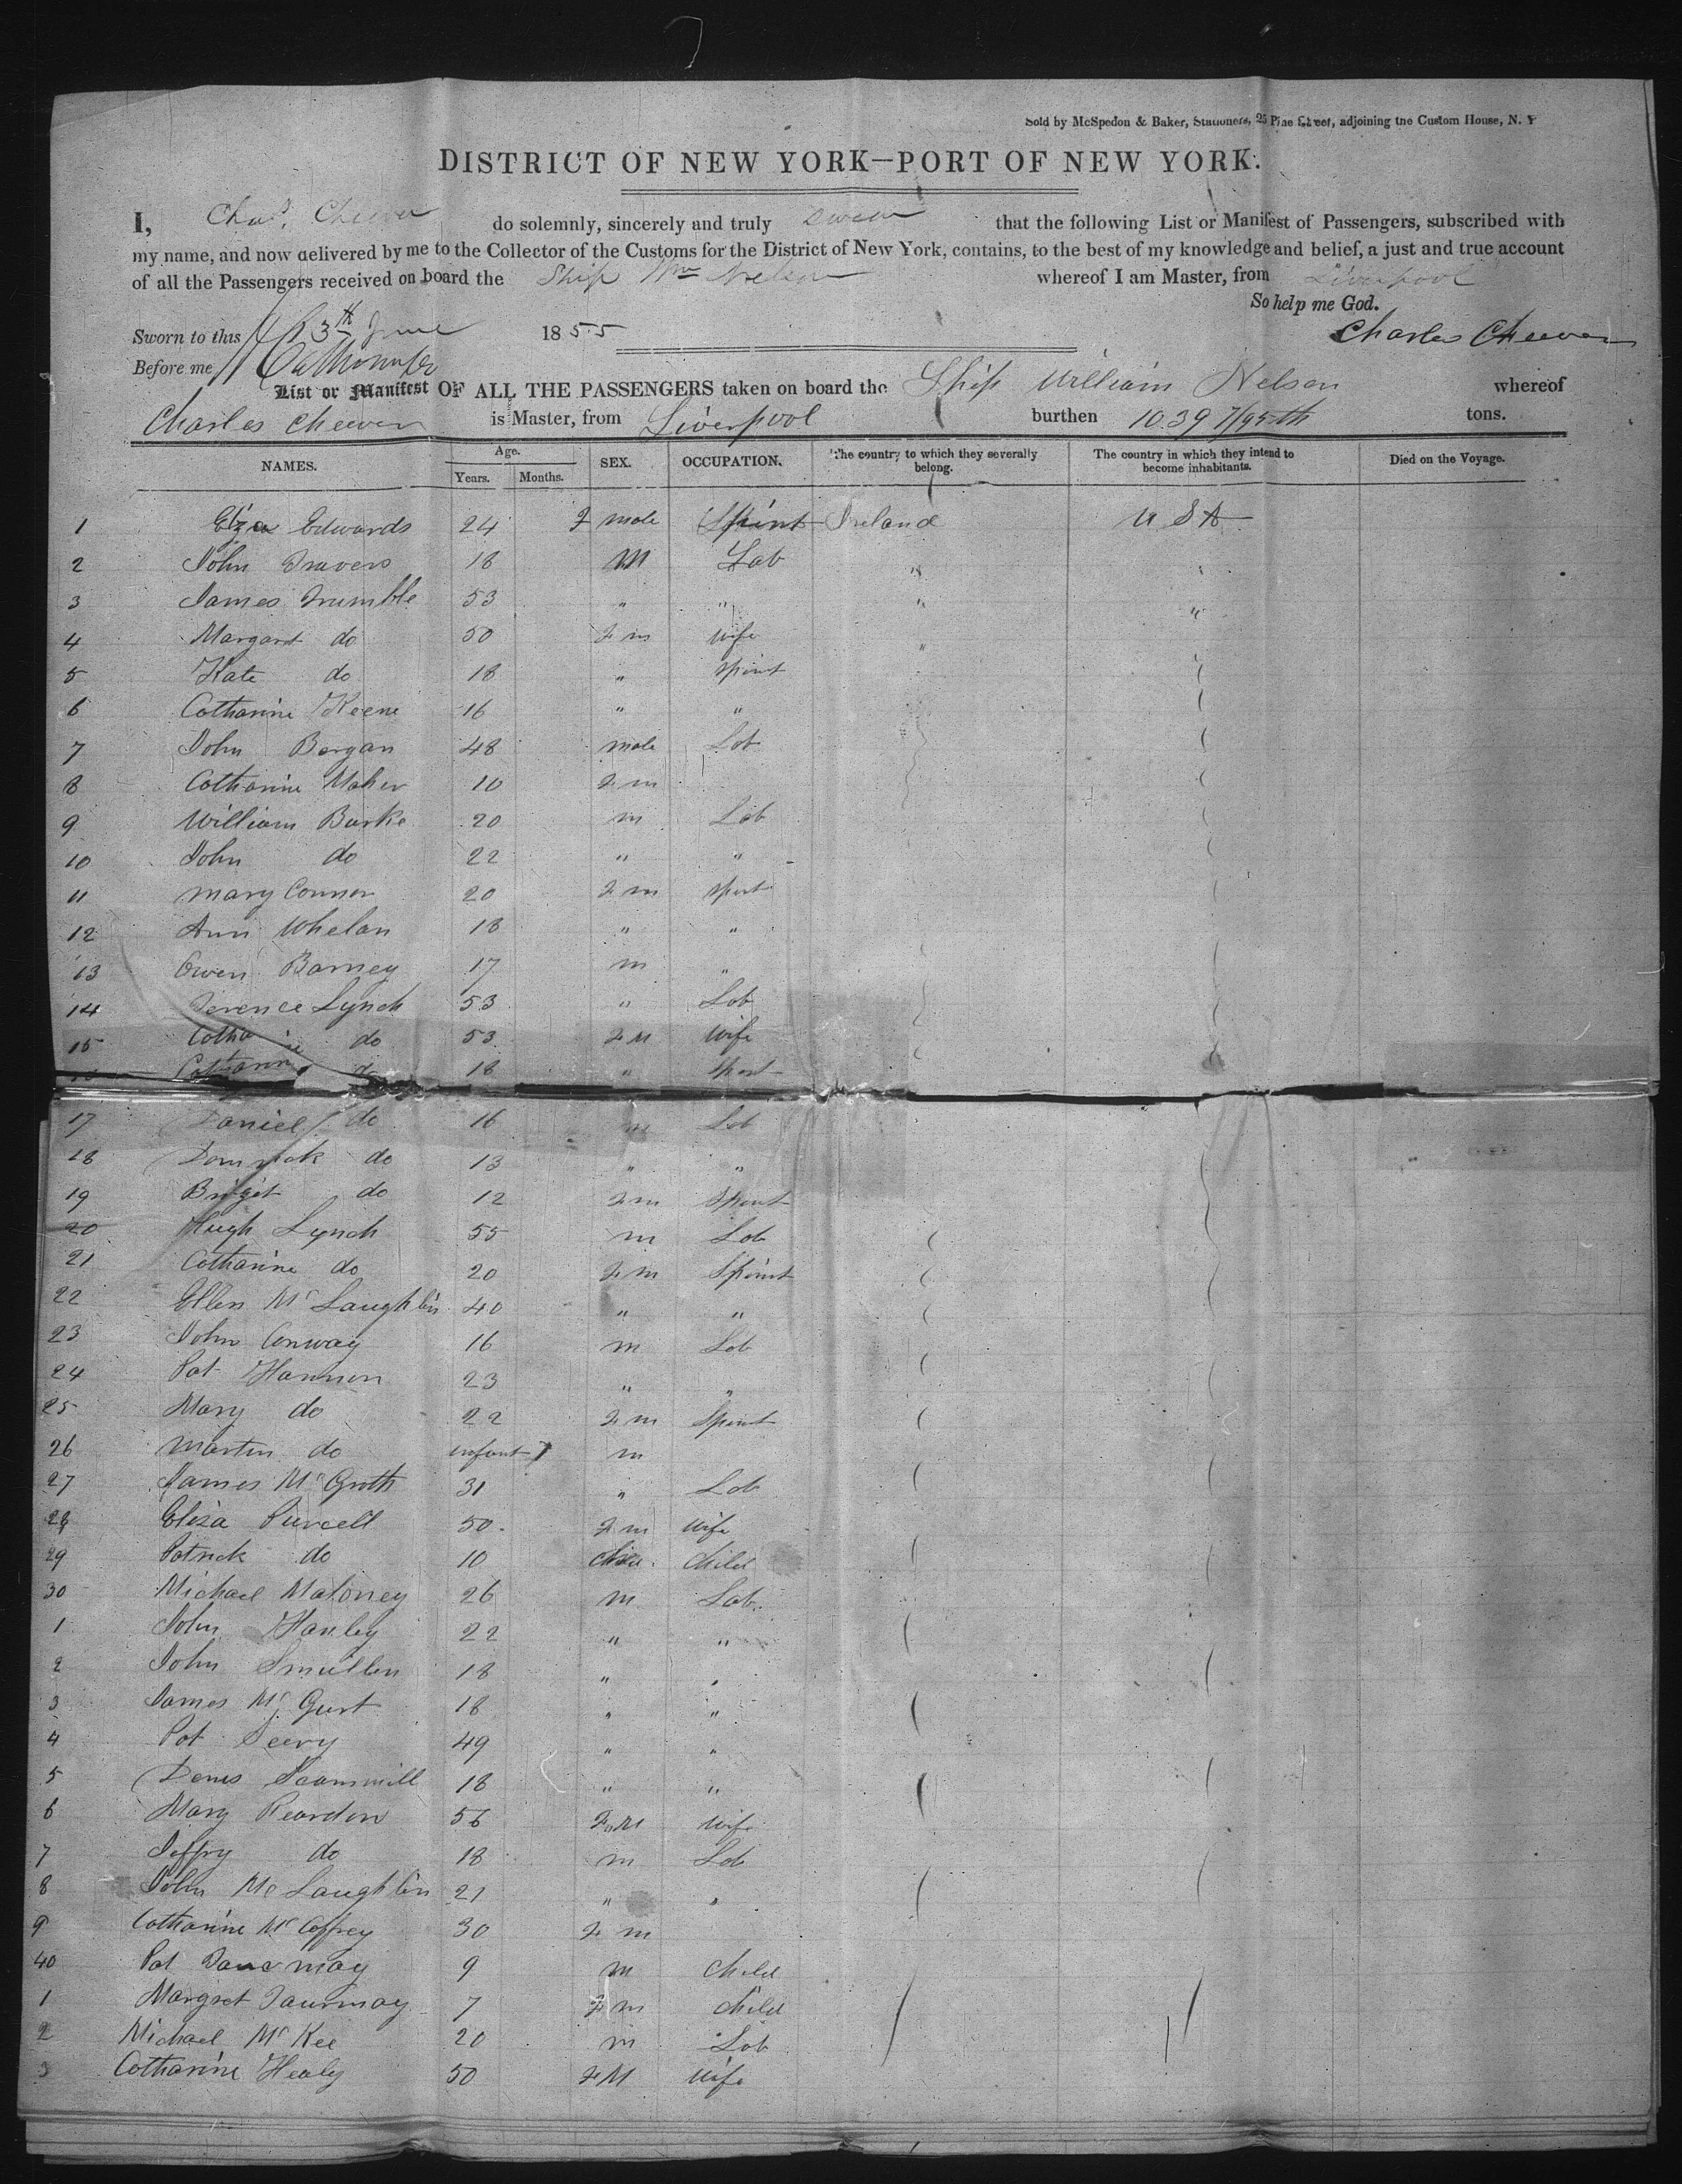 Sold by McSpedon & Baker, Stationers, 25 Pine Street, adjoining the Custom House, N. Y
DISTRICT OF NEW YORK—PORT OF NEW YORK.
I, Chas. Cheever do solemnly, sincerely and truly swear that the following List or Manifest of Passengers, subscribed with
my name, and now delivered by me to the Collector of the Customs for the District of New York, contains, to the best of my knowledge and belief, a just and true account
of all the Passengers received on board the Ship Wm Nelson whereof I am Master, from Liverpool
So help me God.
Sworn to this 13th June 1855 Charles Cheever
Before me
List or Manifest OF ALL THE PASSENGERS taken on board the Ship William Nelson whereof
Charles Cheever is Master, from Liverpool burthen 1039 7/95th tons.
NAMES. Age. Years. Months. SEX. OCCUPATION. The country to which they severally belong. The country in which they intend to become inhabitants. Died on the Voyage.
1 Eliza Edwards 24 F male Spinst Ireland U S A
2 John Travers 18 M Lab " "
3 James Trumble 53 " " " "
4 Margart do 50 Fm wife "
5 Kate do 18 " spinst
6 Catharine Keene 16 " "
7 John Bergan 48 male Lab
8 Catharine Maher 10 Fm
9 William Burke 20 m Lab
10 John do 22 " "
11 Mary Connor 20 Fm spinst
12 Ann Whelan 18 " "
13 Owen Barney 17 m "
14 Terence Lynch 53 " Lab
15 Catharine do 53 Fm wife
Catharine do 18 " Spinst
17 Daniel do 16 m Lab
18 Dominick do 13 " "
19 Bridget do 12 Fm Spinst
20 Hugh Lynch 55 m Lab
21 Catharine do 20 Fm Spinst
22 Ellen McLaughlin 40 " "
23 John Conway 16 m Lab
24 Pat Hannon 23 " "
25 Mary do 22 Fm Spinst
26 Martin do infant m
27 James McGrath 31 " Lab
28 Eliza Purcell 50 Fm wife
29 Patrick do 10 child
30 Michael Maloney 26 m Lab
1 John Hanley 22 " "
2 John Smullen 18 " "
3 James Mc Gurt 18 " "
4 Pat 49 " "
5 Denis 18 " "
6 Mary Reardon 56 Fm wife
7 Jeffry do 18 m Lab
8 John McLaughlin 21 " "
9 Catharine McCaffrey 30 Fm
40 Pat 9 m child
1 Margret 7 Fm child
2 Michael McKee 20 m Lab
3 Catharine Healy 50 Fm wife